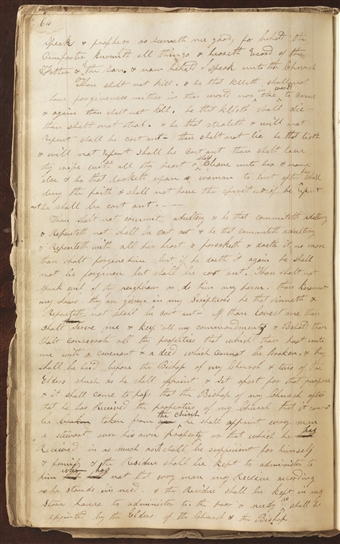 64
Speak & prophecy as seemeth me good, for behold the
Comforter knoweth all things & beareth record of the
Father & the Son. & now behold I speak unto the Church
Thou shalt not kill. & he that killeth shall not
have forgiveness neither in this world nor the to come world
& again thou shalt not kill. he that killeth shall die
thou shalt not steal. & he that stealeth & will not
repent shall be cast out — thou shalt not lie he that lieth
& will not repent shall be cast out thou shalt love
thy wife with all thy heart & shall Cleave unto her & none
else & he that looketh upon a woman to lust after her shall
deny the faith & shall not have the spirit & if he repent
not he shall be cast out. - - -
Thou shalt not commit adultery & he that committeth adultery
& repenteth not shall be cast out & he that committeth adultery
& Repenteth with all his heart & forsaketh & doeth it no more
thou shalt forgive him but if he doeth it again he shall
not be forgiven but shall be cast out. Thou shalt not
speak evil of thy neighbour or do him any harm. thou knowest
my laws they are given in my Scriptures he that sinneth &
Repenteth not shall be cast out. If thou lovest me thou
shalt serve me & keep all my commandments & Behold thou
shalt consecrate all thy properties that which thou hast unto
me with a covenant & a deed which cannot be broken. & they
shall be laid before the Bishop of my Church & two of the
Elders which as he shall appoint & set apart for that purpose
& it shall come to pass that the Bishop of my Church after
that he has received the properties of my Church that it cannot
be taken from the church he shall appoint every man
a steward over his own Property or that which he has
Received in as much as shall be sufficient for himself
& family & the Residue shall be kept to administer to
him who has not that every man may Receive according
as he stands in need. & the Residue shall be kept in my
Store house to administer to the poor & needy as shall be
appointed by the Elders of the Church & the Bishop